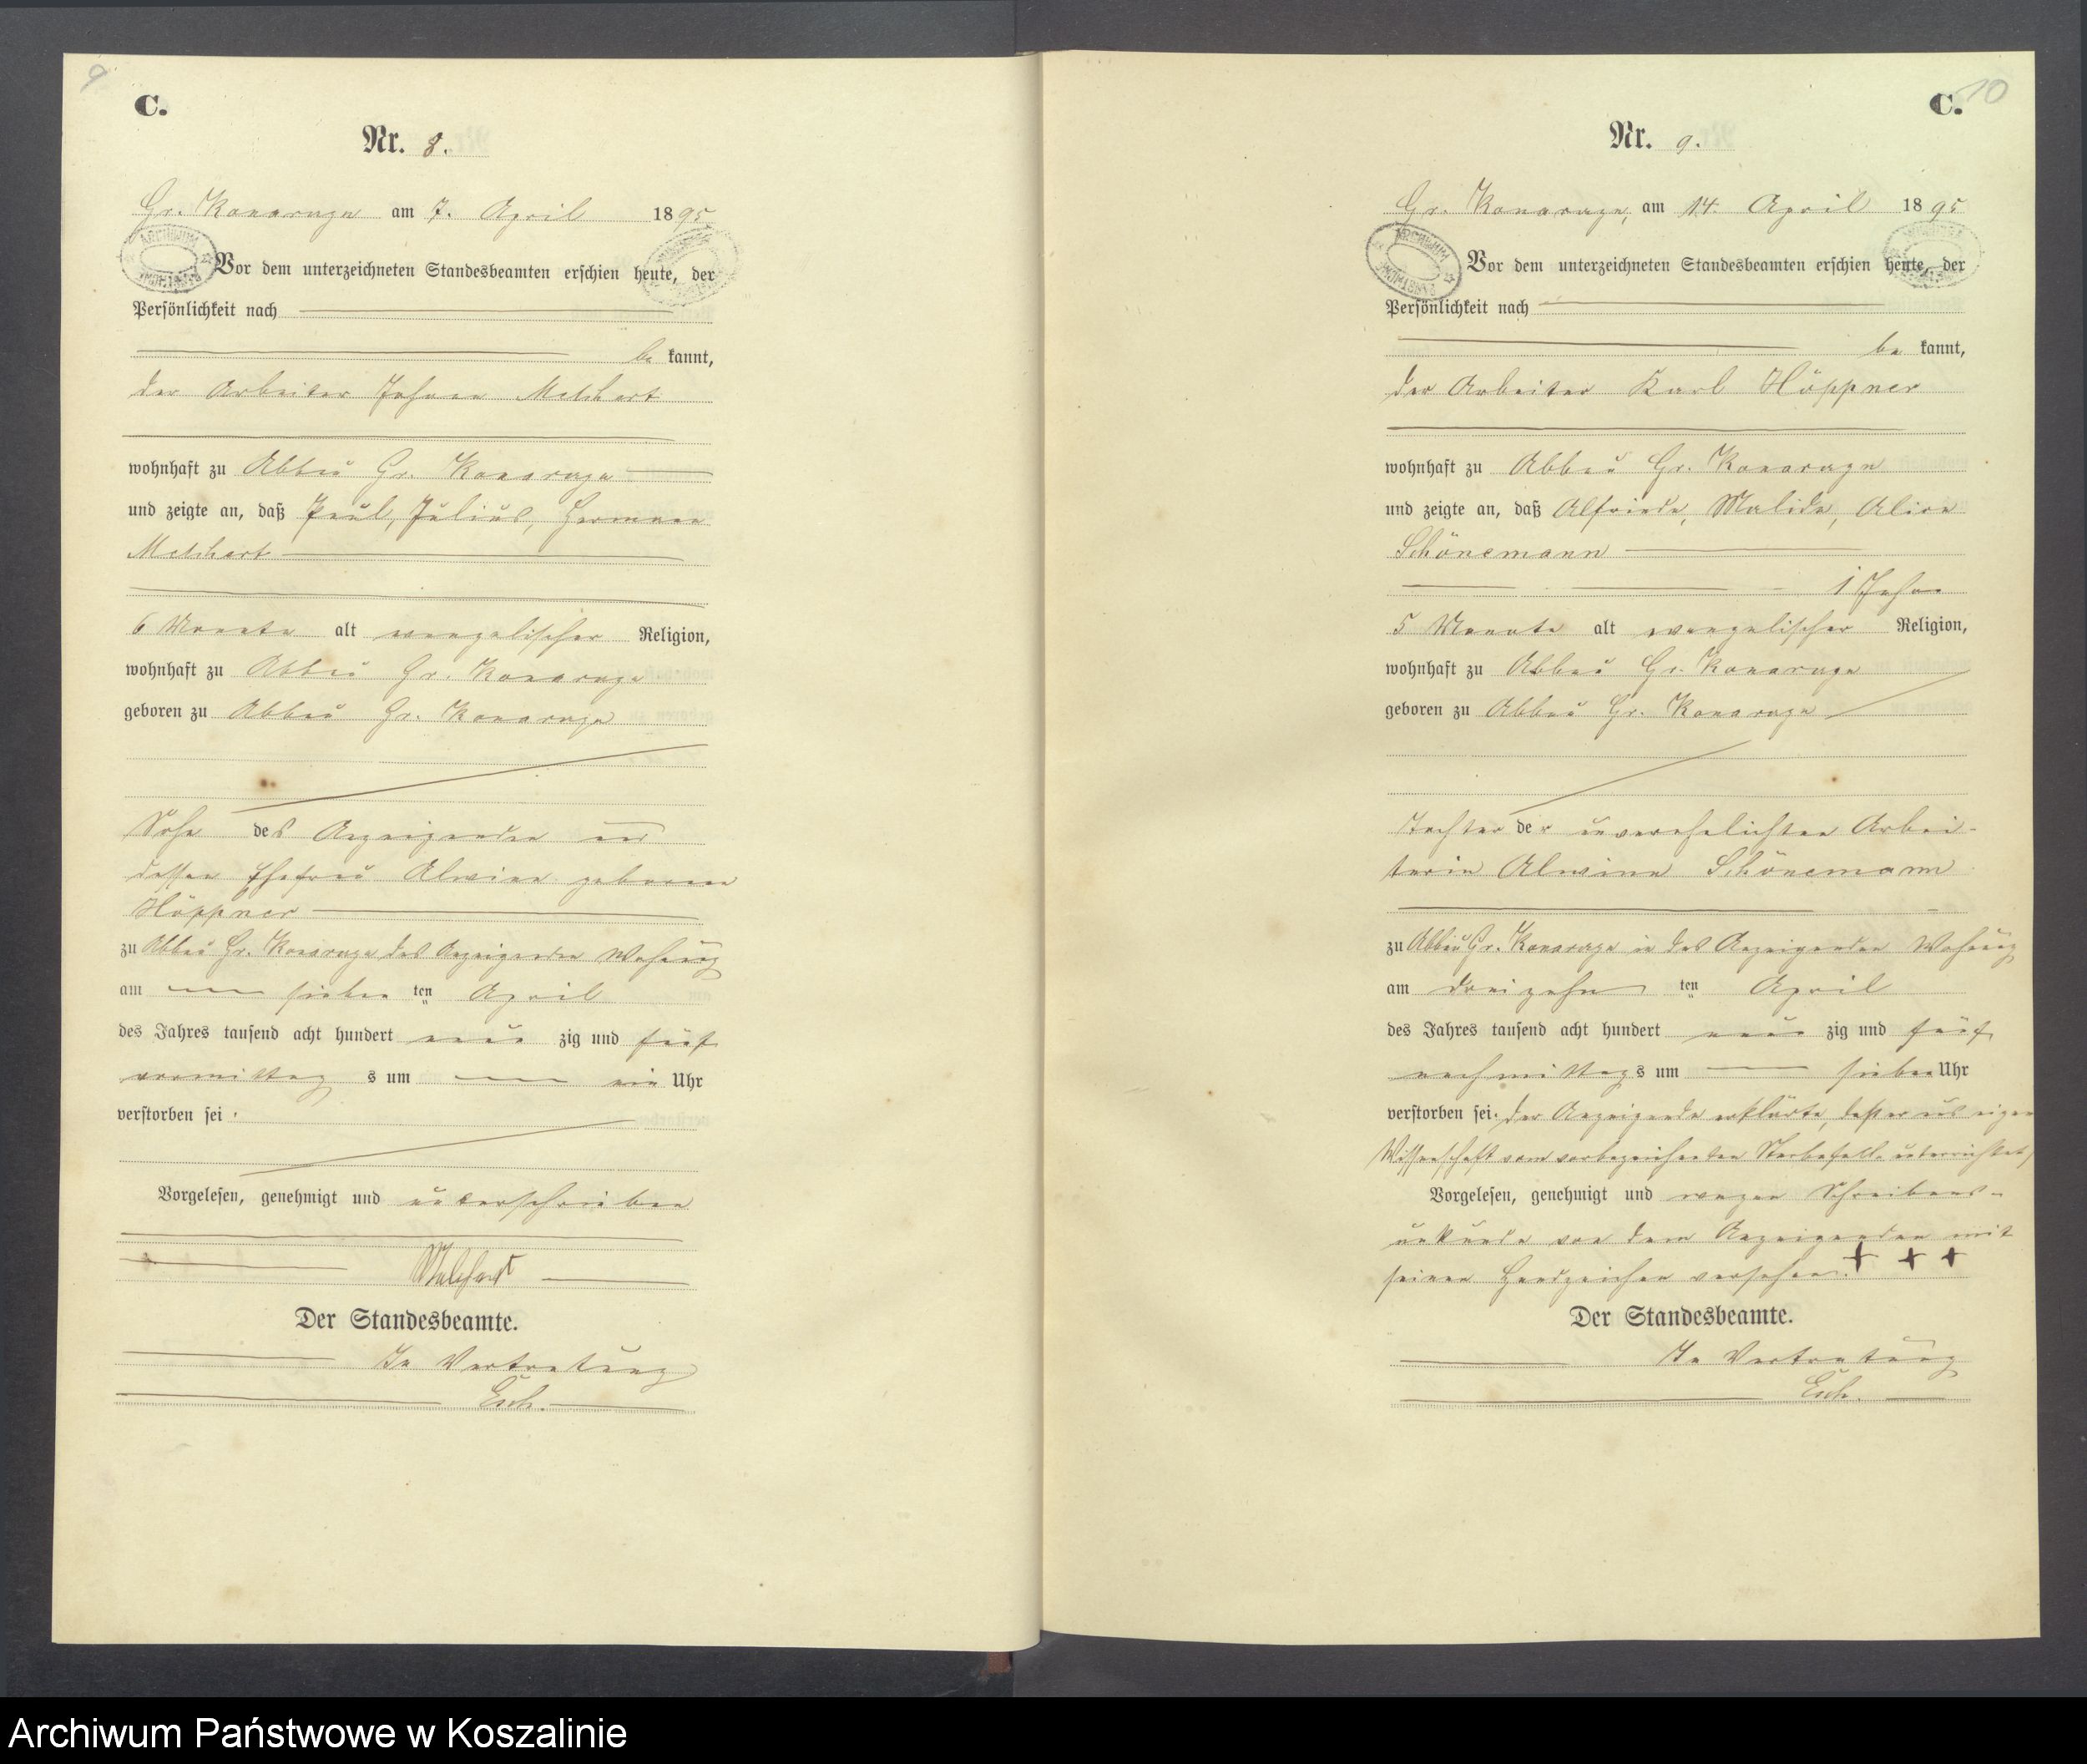 9
C.
Nr. 8.
Gr. Konarzyn am 7. April 1895
ARCHIWUM
Vor dem unterzeichneten Standesbeamten erschien heute, der
Persönlichkeit nach
be kannt,
der Arbeiter Johann Melchert
wohnhaft zu Abbau Gr. Konarzyn
und zeigte an, daß Paul, Julius, Hermann
Melchert
6 Monate alt evangelischer Religion,
wohnhaft zu Abbau Gr. Konarzyn
geboren zu Abbau Gr. Konarzyn
Sohn des Anzeigenden und
dessen Ehefrau Alwine geborene
Höppner
zu Abbau Gr. Konarzyn des Anzeigenden Wohnung
am sieben ten April
des Jahres tausend acht hundert neun zig und fünf
vormittag s um ein Uhr
verstorben sei.
Vorgelesen, genehmigt und unterschrieben
Melchert
Der Standesbeamte.
In Vertretung
10
C.
Nr. 9.
Gr. Konarzyn, am 14. April 1895
ARCHIWUM
Vor dem unterzeichneten Standesbeamten erschien heute, der
Persönlichkeit nach
be kannt,
der Arbeiter Karl Höppner
wohnhaft zu Abbau Gr. Konarzyn
und zeigte an, daß Alfriede, Malida, Alice
Schönemann
1 Jahr
5 Monate alt evangelischer Religion,
wohnhaft zu Abbau Gr. Konarzyn
geboren zu Abbau Gr. Konarzyn
Tochter der unverehelichten Arbei-
terin Alwine Schönemann
zu Abbau Gr. Konarzyn in des Anzeigenden Wohnung
am dreizehn ten April
des Jahres tausend acht hundert neun zig und fünf
nachmittags um sieben Uhr
verstorben sei. Der Anzeigende erklärte, daß er aus eigen
Wissenschaft vom vorbezeichneten Sterbefall unterrichtet
Vorgelesen, genehmigt und wegen Schreibens-
unkunde von dem Anzeigenden mit
seinen Handzeichen versehen. + + +
Der Standesbeamte.
In Vertretung
Archiwum Państwowe w Koszalinie